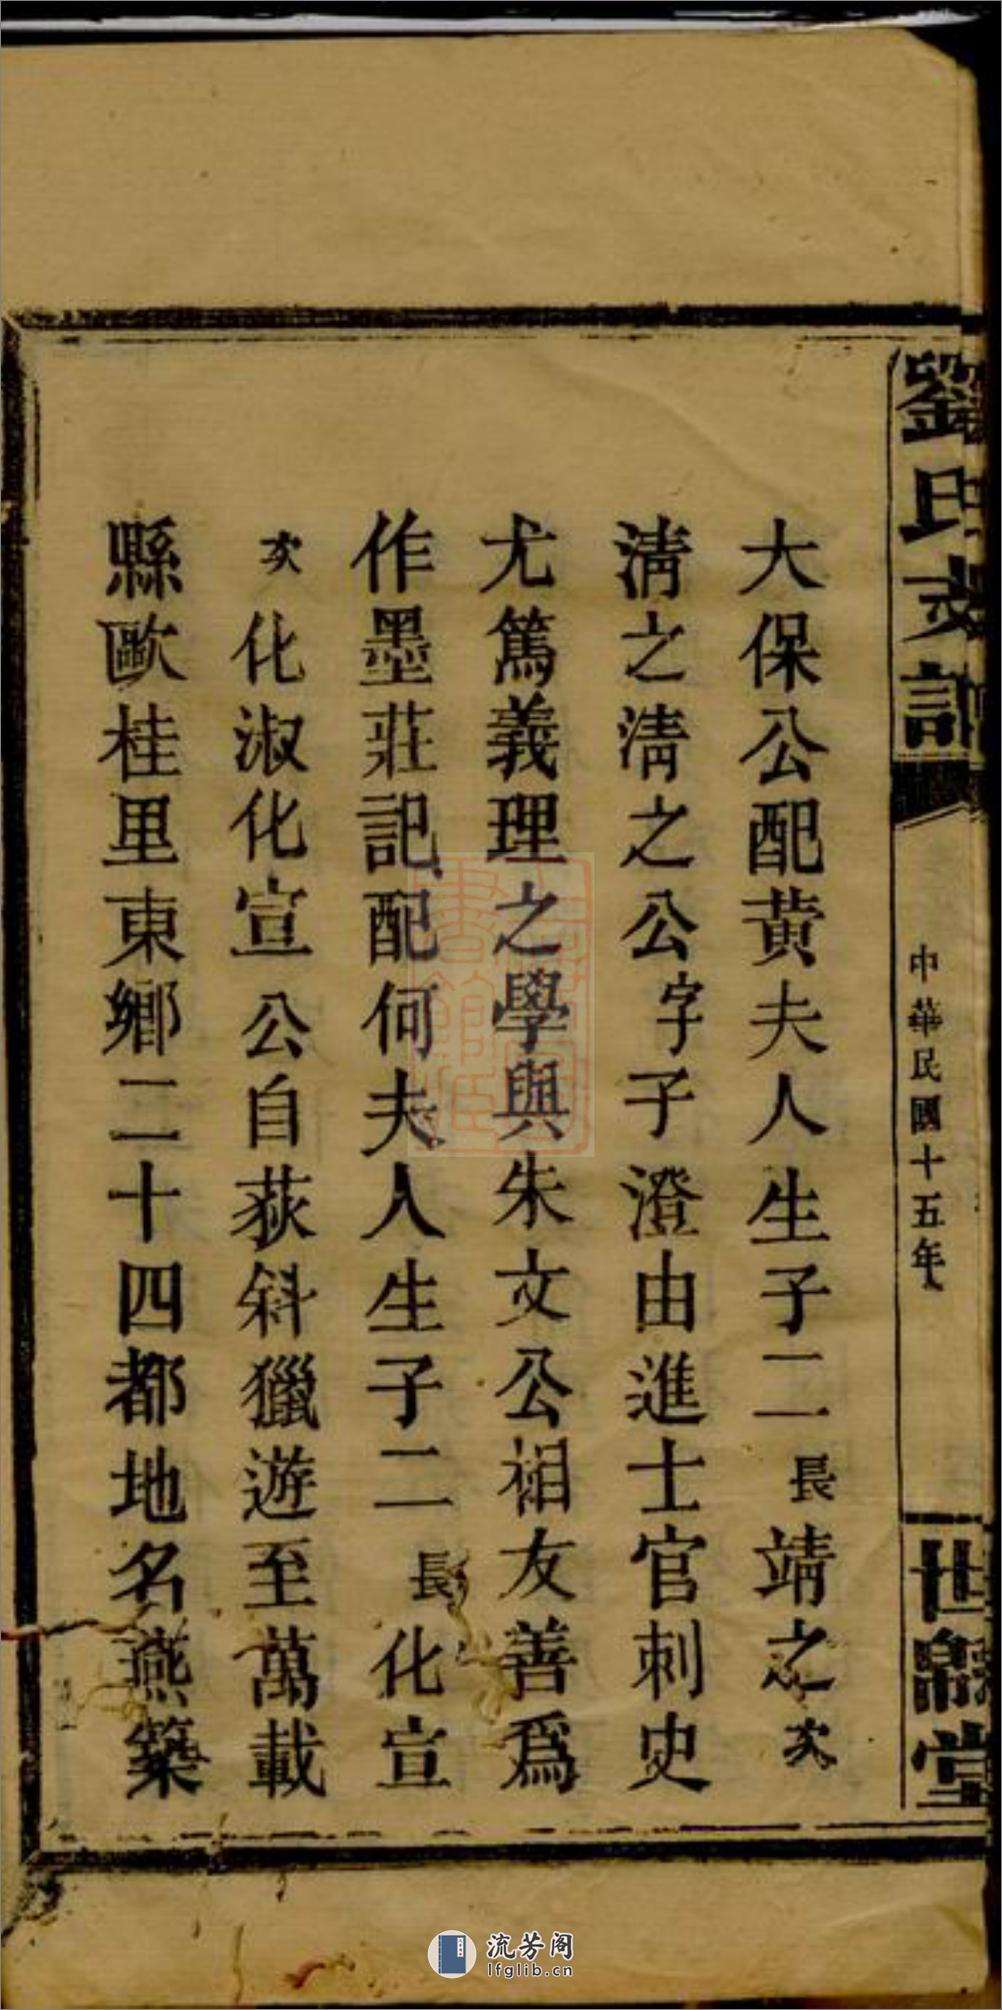 劉氏支譜
中華民國十五年
世綵堂
大保公配黃夫人生子二長靖之次
淸之淸之公字子澄由進士官刺史
尤篤義理之學與朱文公相友善爲
作墨莊記配何夫人生子二長化宣
次化淑化宣公自荻斜獵遊至萬載
縣歐桂里東鄉二十四都地名燕築
流芳阁
lfglib.cn